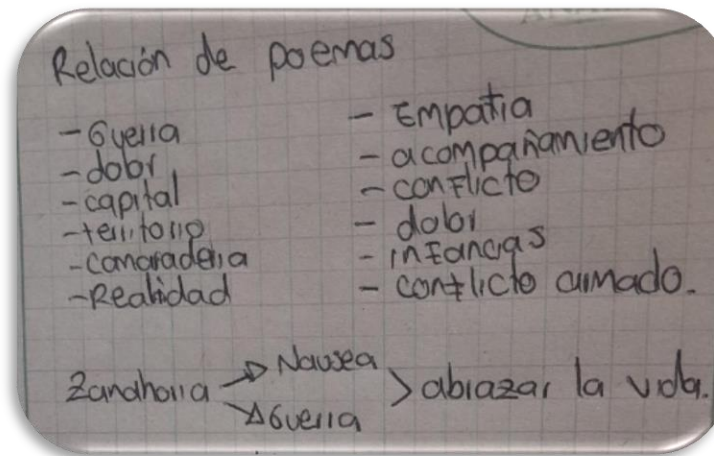 Relación de poemas
- Guerra
- dolor
- capital
- territorio
- camaradería
- Realidad
- Empatía
- acompañamiento
- conflicto
- dolor
- infancias
- conflicto armado.
Zanahoria → Nausea
→ Guerra
> abrazar la vida.